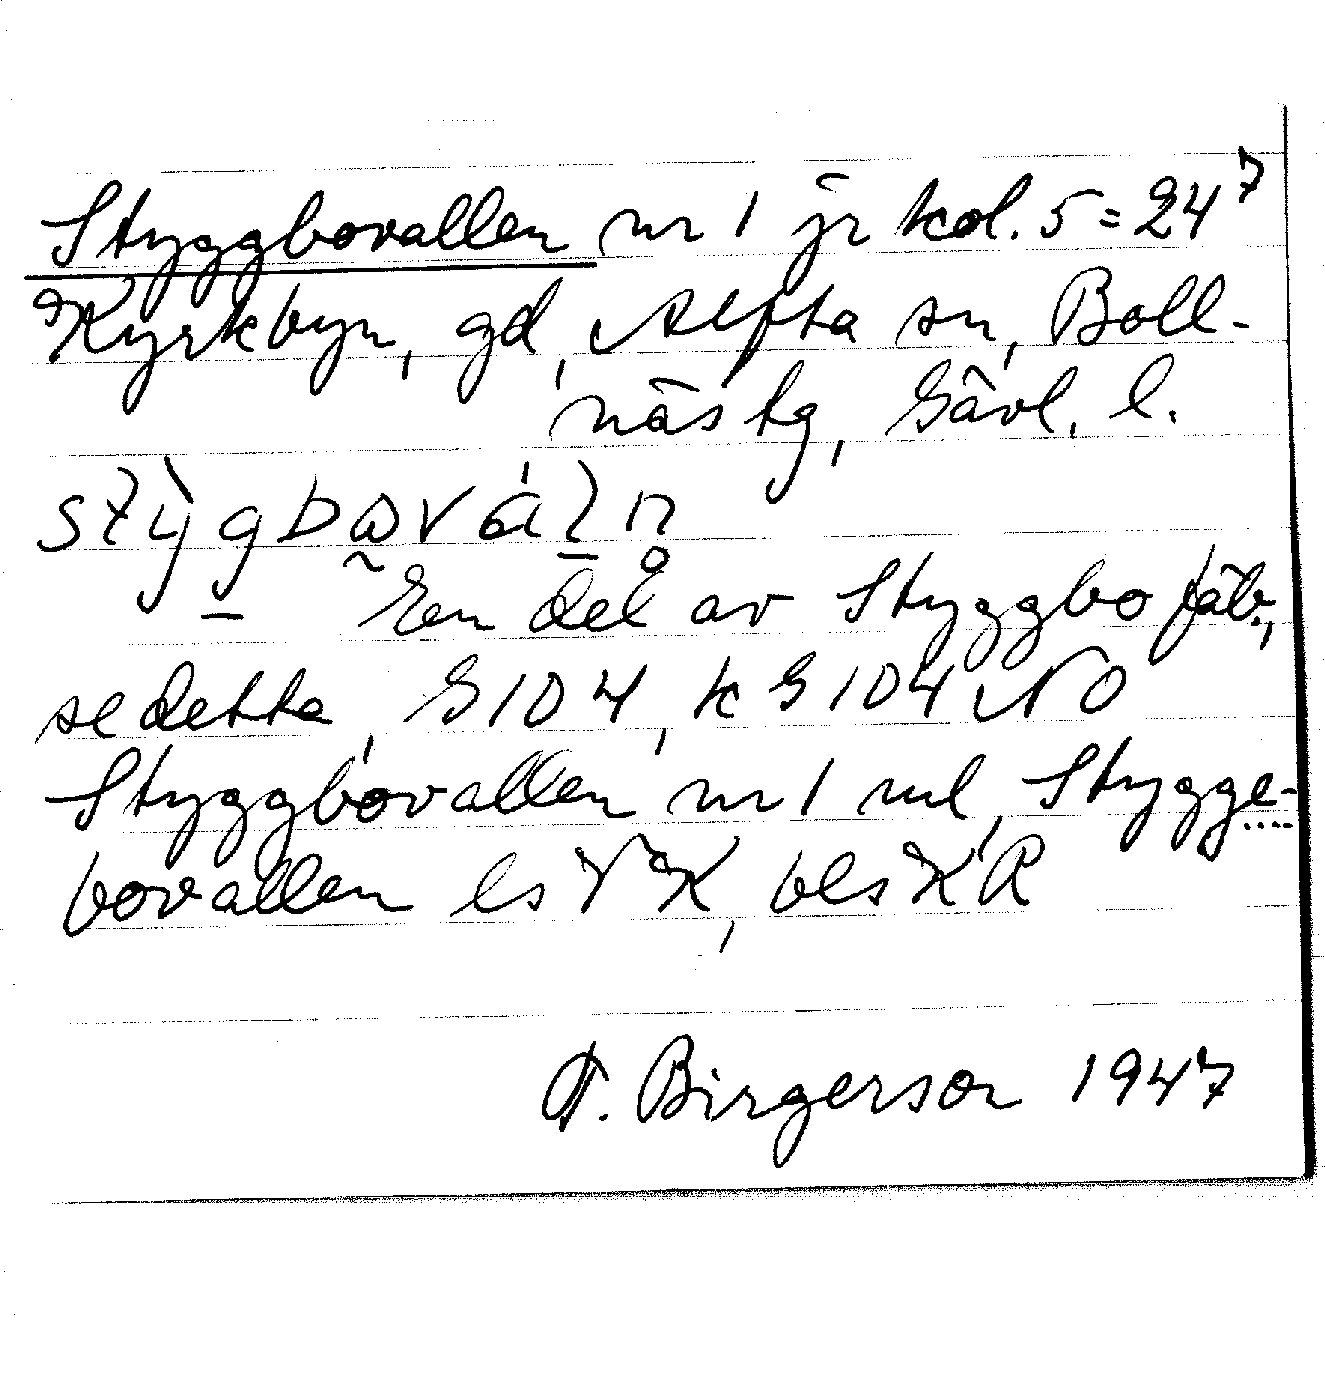 Styggbovallen nr 1 jr kol. 5 = 24⁷
Kyrkbyn, gd, Alfta sn, Boll-
näs tg, Gävl. l.
En del av Styggbo fäb.,
se detta, G 104, k G 104 NO
Styggbovallen nr 1 ml, Stygge-
bovallen ls VK, bls KR
T. Birgerson 1947